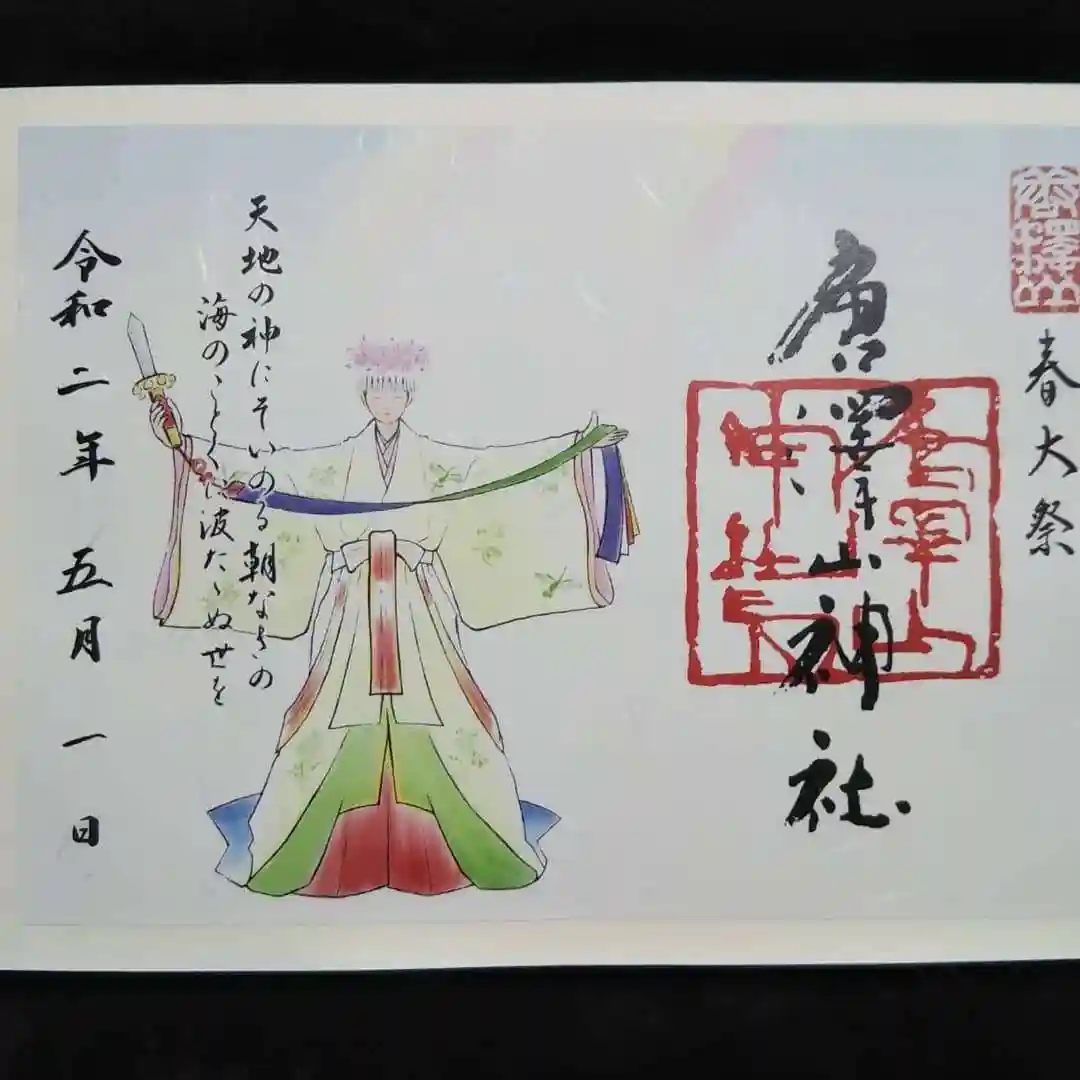 唐澤山
春大祭
唐澤山神社
唐澤山神社
天地の神にそいのる朝なきの
海のことくに波たゝぬ世を
令和二年五月一日